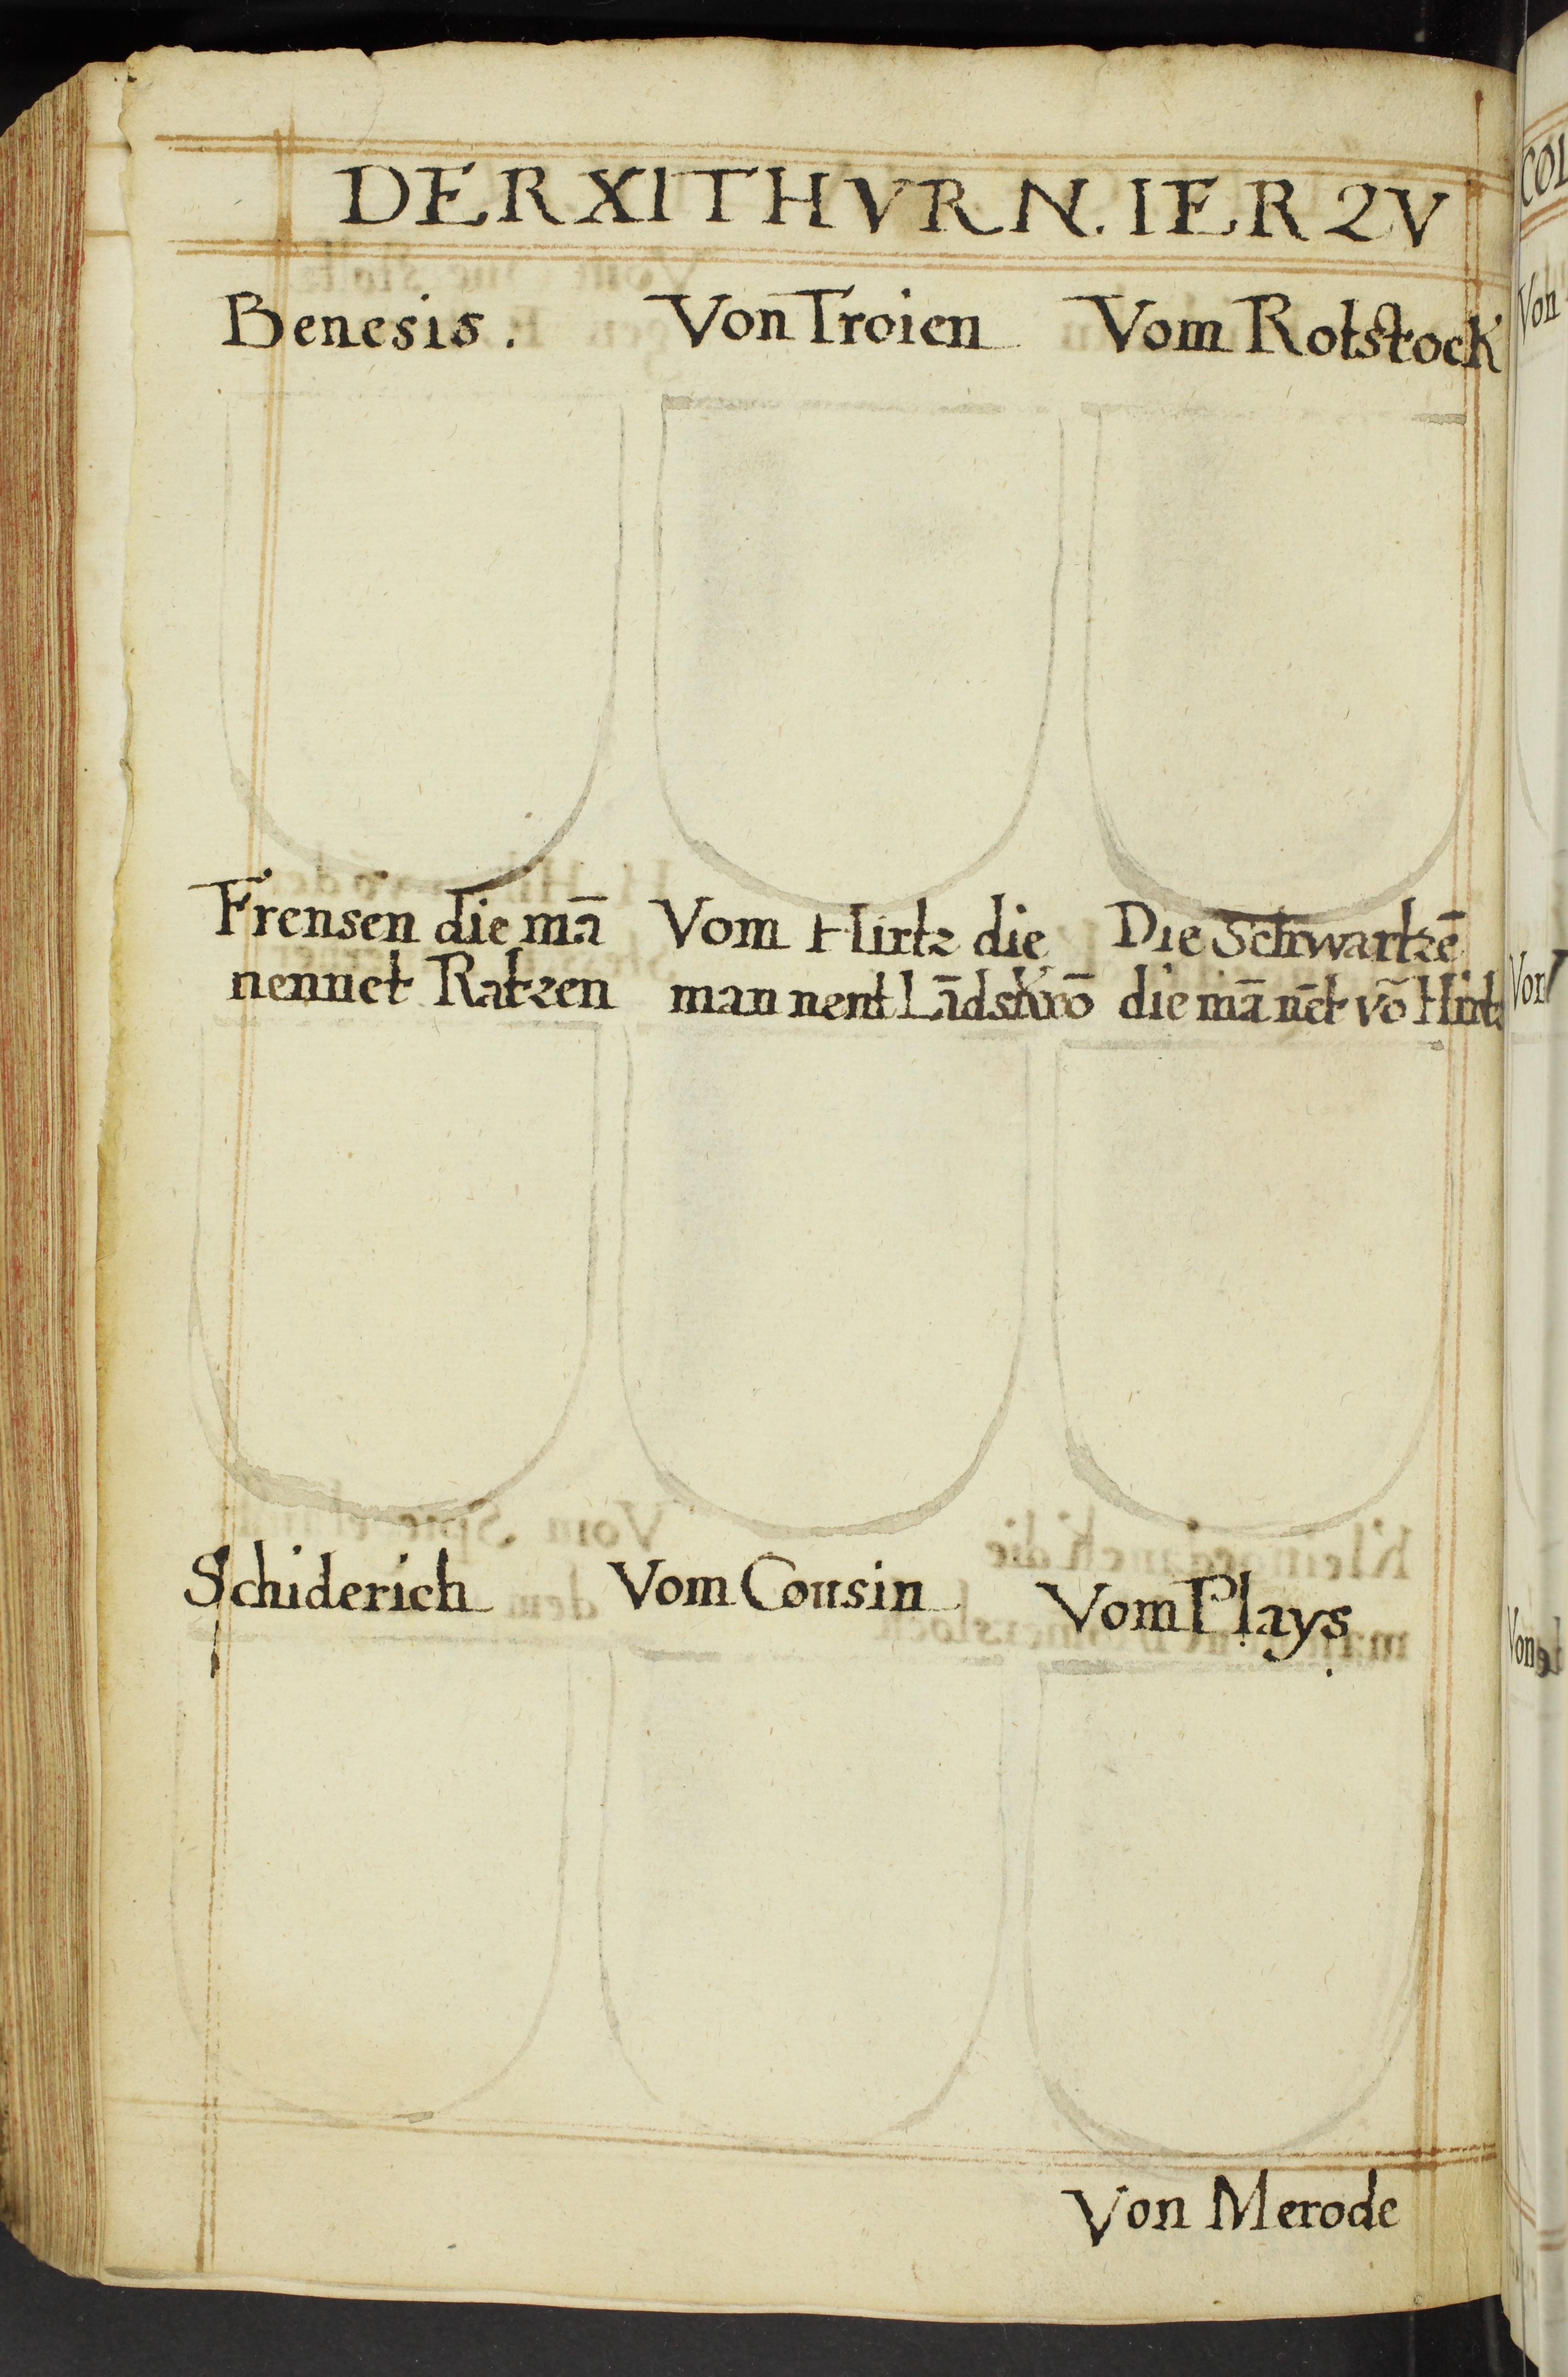 DER XI THVRN. IER ZV
Benesis.
Von Troien
Vom Rotstock
Frensen die mā
nennet Ratzen
Vom Hirtz die
man nent Lādskrō
Die Schwartzē
die mā nēt vō Hirtz
Schiderich
Vom Cousin
Vom Plays
Von Merode